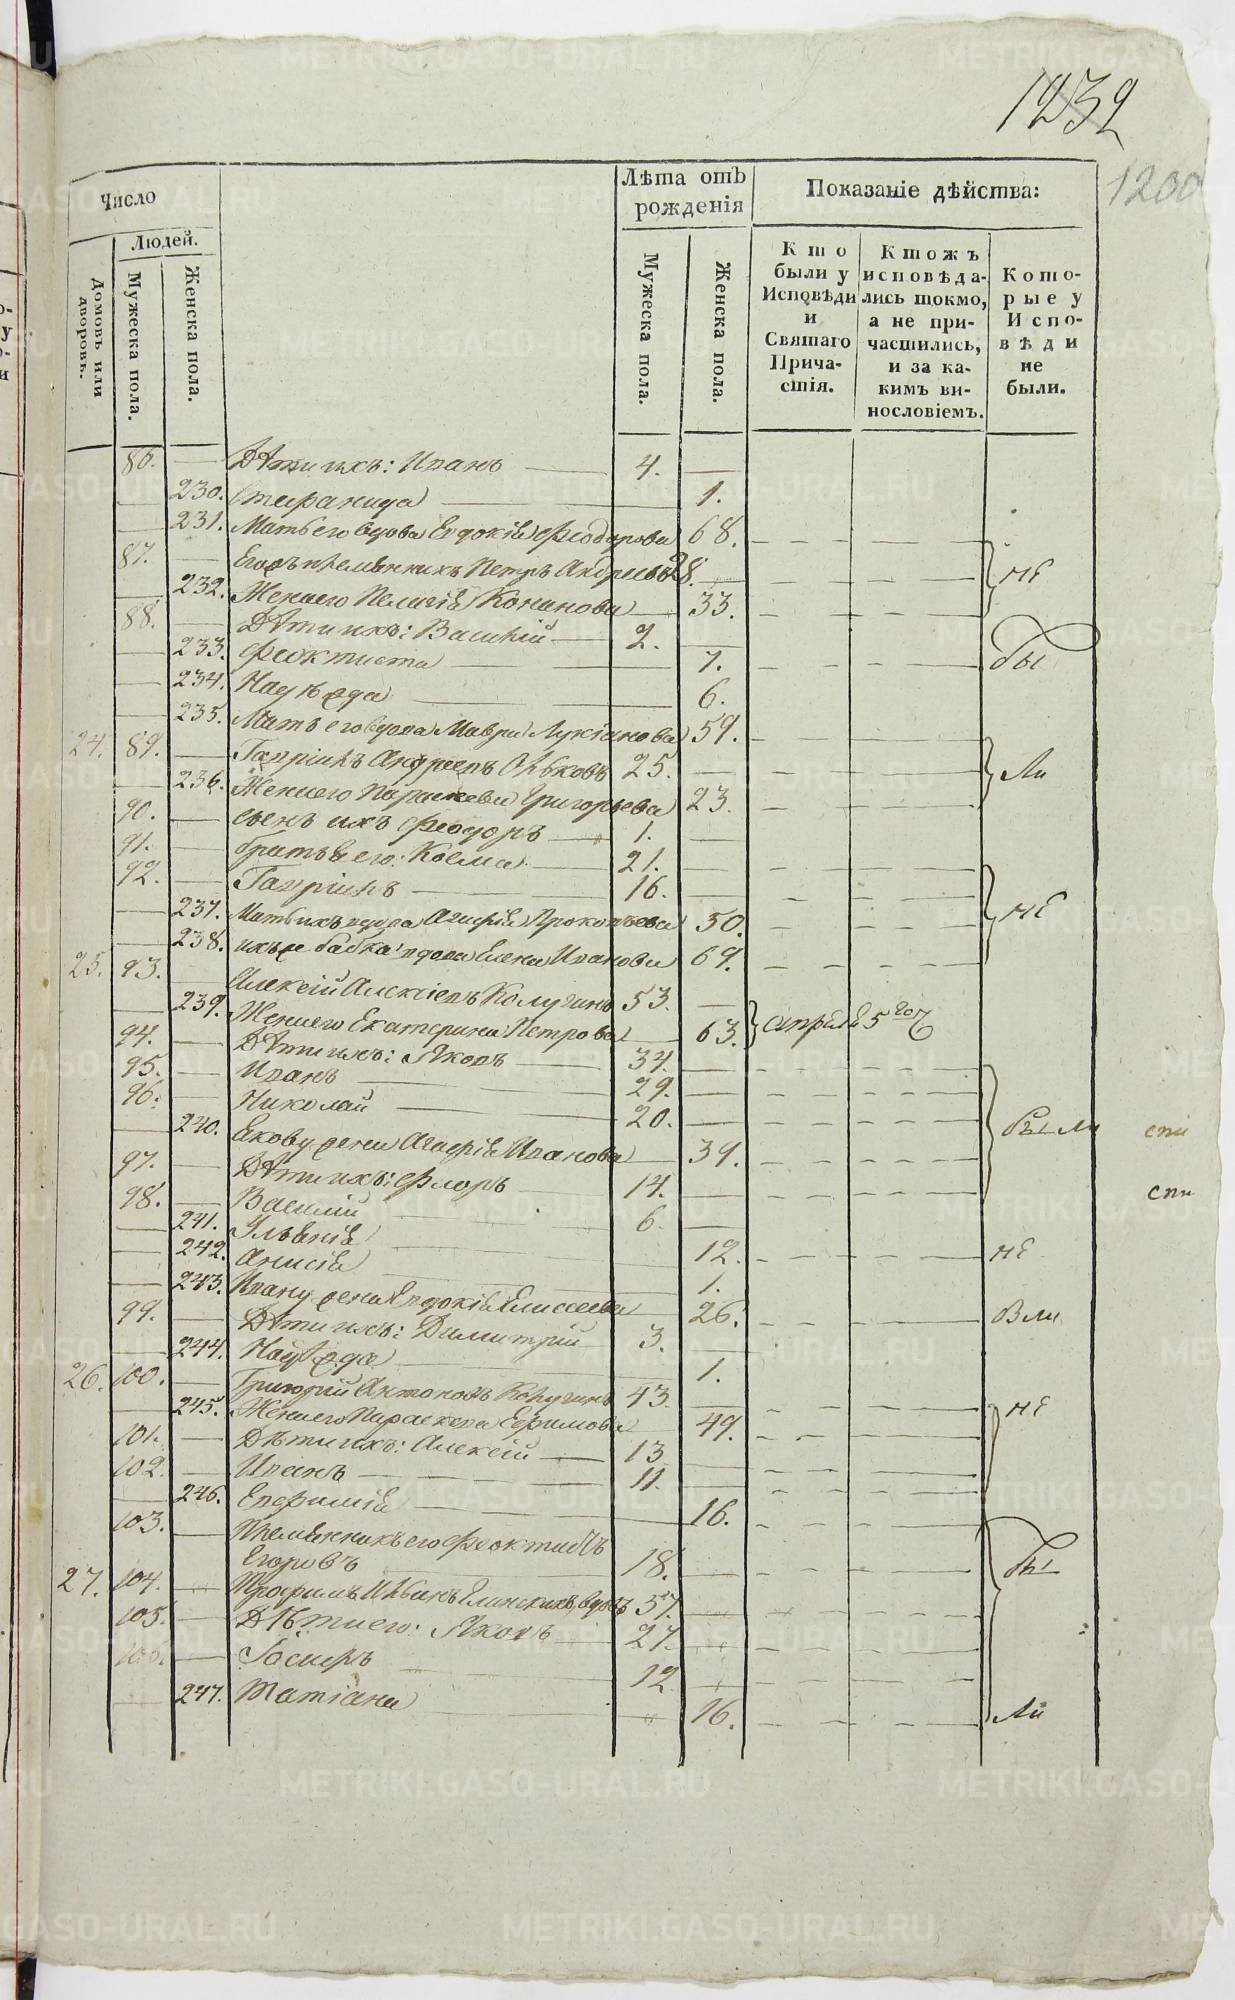 1232
1200
Число
Людей.
Домовъ или дворовъ.
Мужеска пола.
Женска пола.
Лѣта отъ рожденія
Мужеска пола.
Женска пола.
Показаніе дѣйства:
Кто были у Исповѣди и Святаго Причастія.
Ктожъ исповѣдались токмо, а не причастились, и за какимъ винословіемъ.
Которые у Исповѣди не были.
86. Дѣти ихъ: Иванъ 4.
230. Стефанида 1.
231. Мать его вдова Евдокія Феодорова 68.
87. Егоръ племянникъ Петръ Андреевъ 28.
232. Жена его Пелагія Кононова 33. не
88. Дѣти ихъ: Василій 2.
233. Феоктиста 7. бы
234. Надѣжда 6.
235. Мать его вдова Мавра Лукіанова 59.
24. 89. Гавріилъ Андреевъ 25. ли
236. Жена его Параскева Григорьева 23.
90. сынъ ихъ Феодоръ 1.
91. братья его: Косма 21.
92. Гавріилъ 16.
237. Мать ихъ вдова Агафія Прокопьева 50. не
238. ихъ бабка вдова Елена Иванова 69.
25. 93. Алексій Алексіевъ Колугинъ 53.
239. Жена его Екатерина Петрова 63. апрѣля 5го
94. Дѣти ихъ: Яковъ 34.
95. Иванъ 29.
96. Николай 20.
240. Якову жена Агафія Иванова 39. были
97. Дѣти ихъ: Флоръ 14.
98. Василій 6.
241. Ульянія 12. не
242. Анисія 1.
243. Ивану жена Евдокія Елисеева 26. вли
99. Дѣти ихъ: Димитрій 3.
244. Надѣжда 1.
26. 100. Григорій Антоновъ Колугинъ 43.
245. Жена его Параскева Ефимова 49. не
101. Дѣти ихъ: Алексій 13
102. Иванъ 11.
246. Евфимія 16.
103. Племянникъ его Феоктистъ
Егоровъ 18. бы
27. 104. Трофимъ вдовъ 57.
105. Дѣти его: Яковъ 27.
106. Іосифъ 12
247. Татіана 16. ли
спи
спи
METRIKI.GASO-URAL.RU